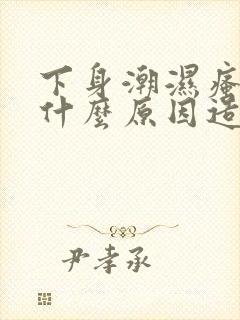 下身潮濕瘙
什麼原因造
尹孝承